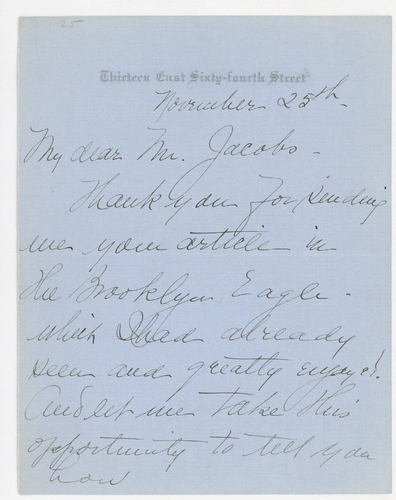 25
Thirteen East Sixty-fourth Street
November 25th.
My dear Mr. Jacobs -
Thank you for sending
me your article in
the Brooklyn Eagle -
which I had already
seen and greatly enjoyed.
And let me take this
opportunity to tell you
how